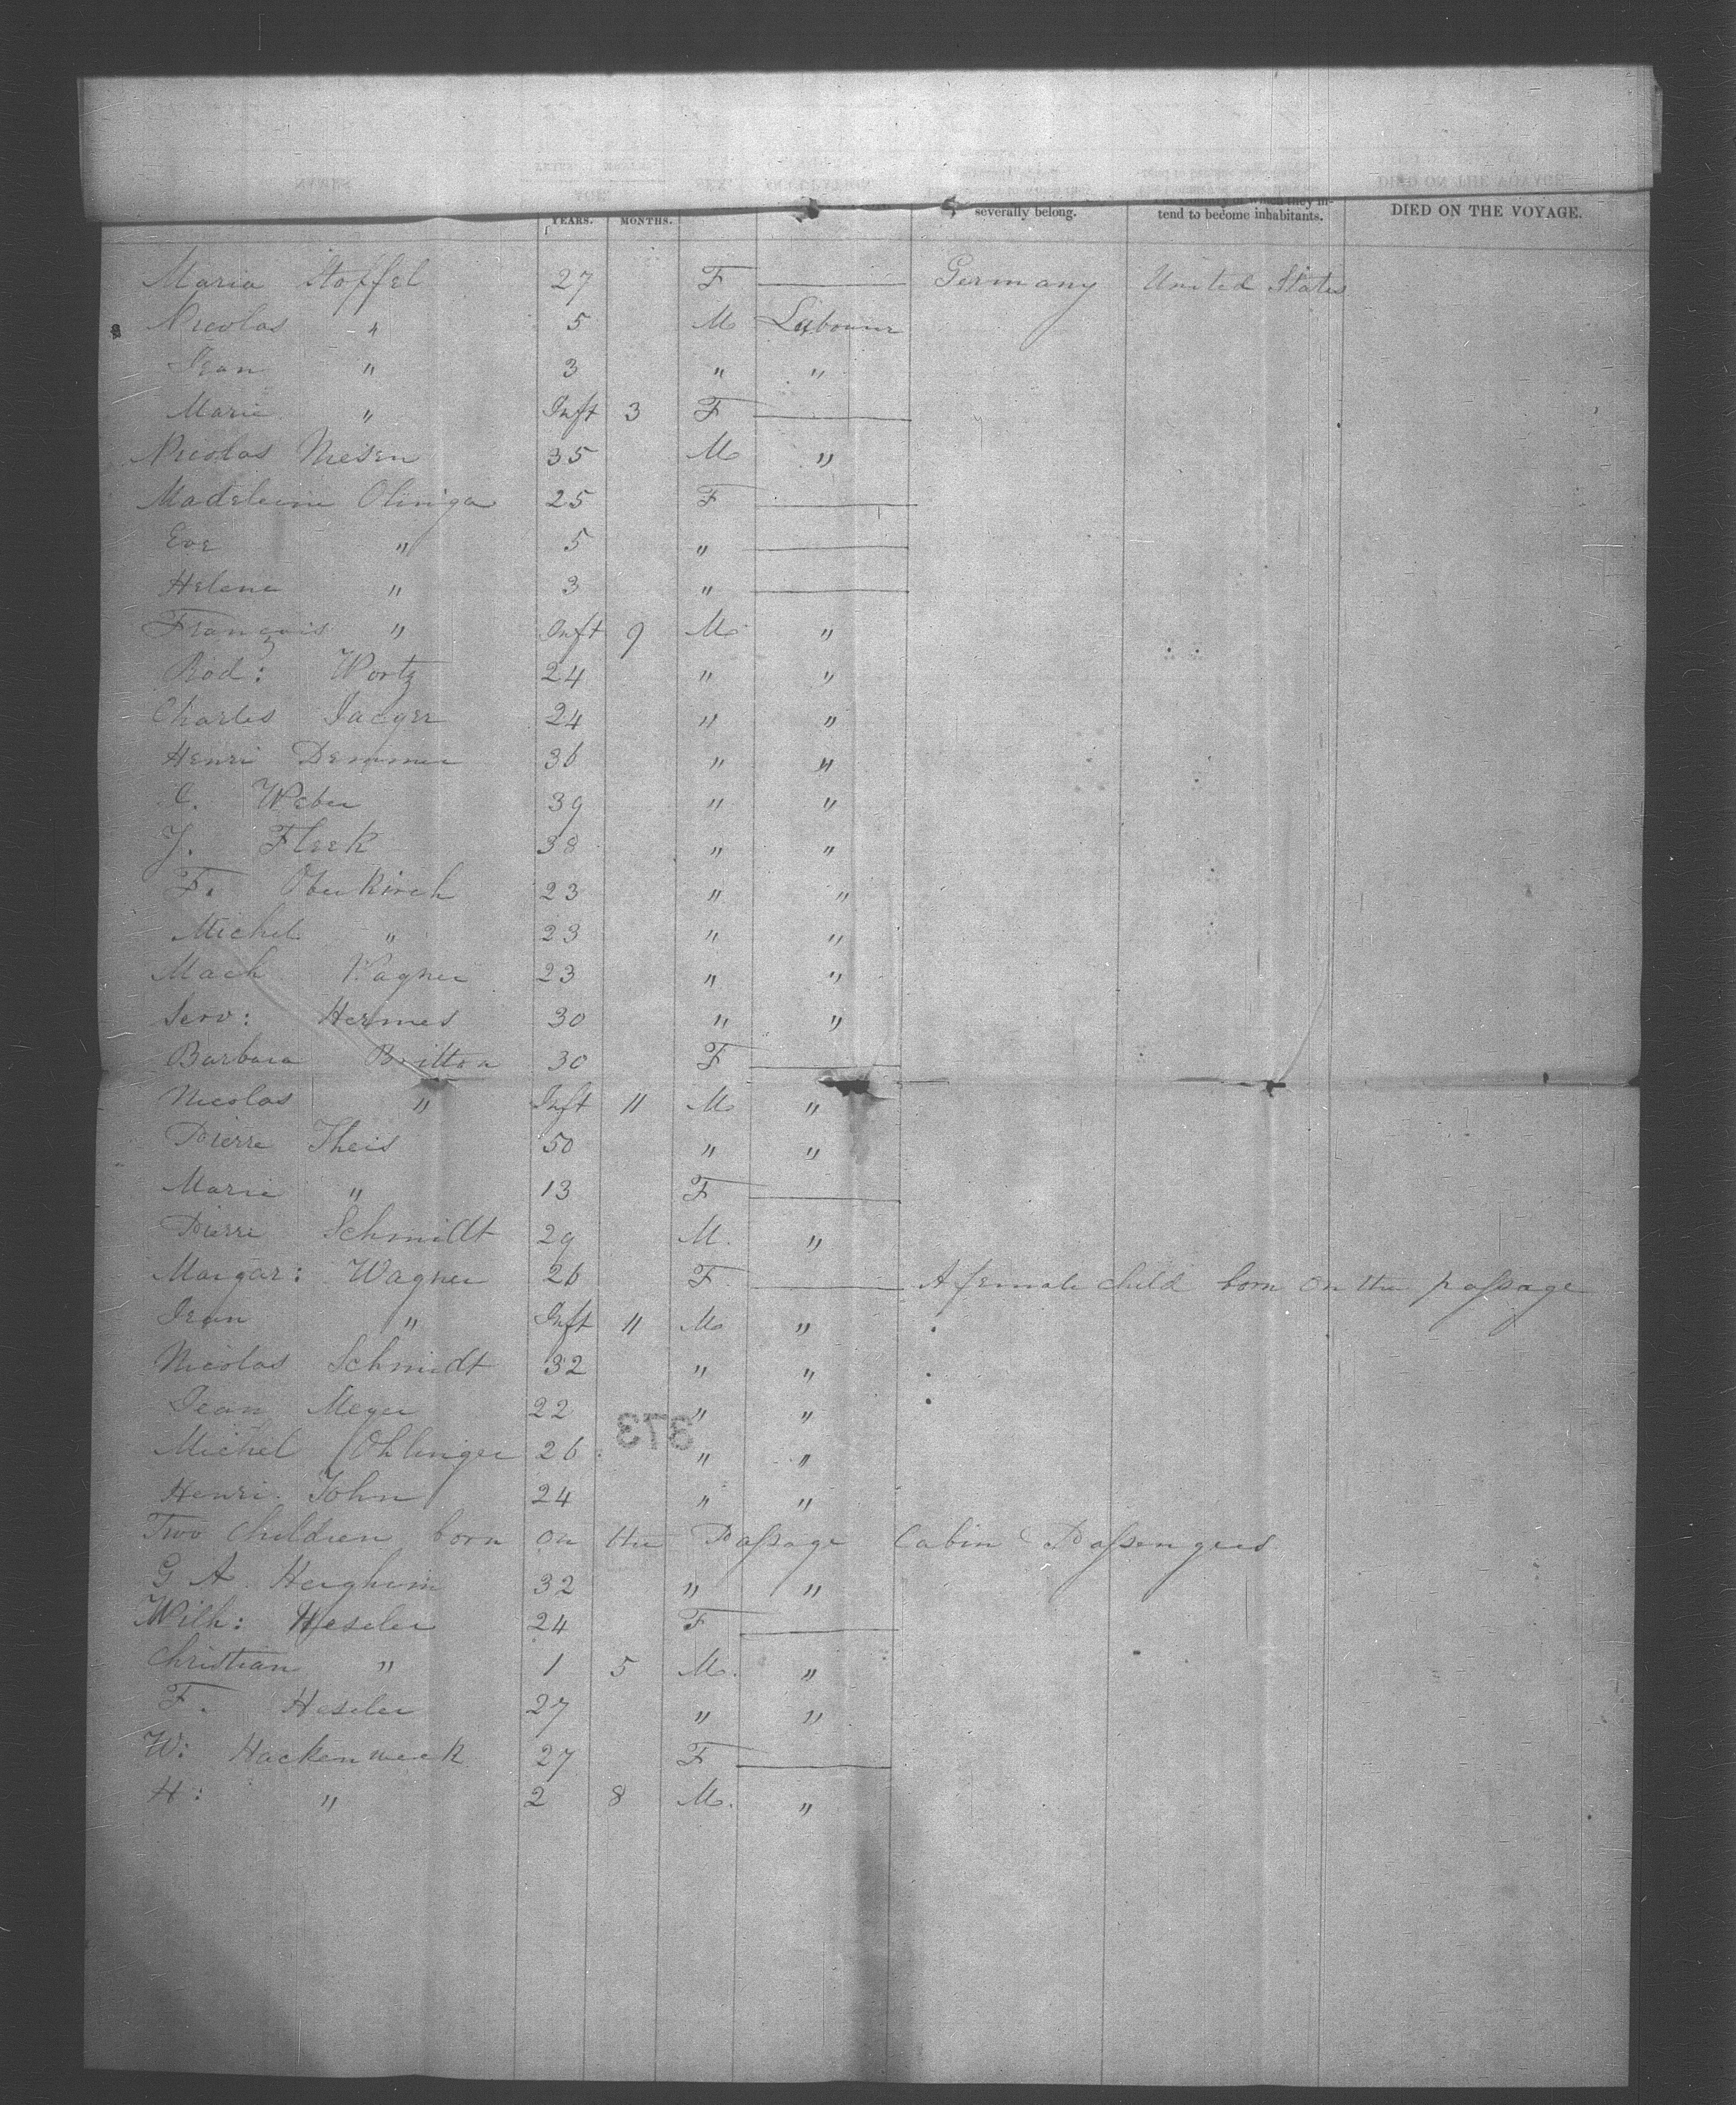 YEARS. MONTHS. severally belong. The Country of which they in- tend to become inhabitants. DIED ON THE VOYAGE.
Maria Stoffel 27 F —— Germany United States
Nicolas " 5 M Labourer
Jean " 3 " "
Marie " Inft 3 F ——
Nicolas Meisen 35 M "
Madeleine Olinger 25 F ——
Eve " 5 " ——
Helena " 3 " ——
François " Inft 9 M "
Rod: Wortz 24 " "
Charles Jaeger 24 " "
Henri Demmer 36 " "
Weber 39 " "
J. Fleek 38 " "
F. Oberkirch 23 " "
Michel " 23 " "
Mach Wagner 23 " "
Serv: Hermes 30 " "
Barbara Britton 30 F ——
Nicolas " Inft 11 M "
Pierre Theis 50 " "
Marie " 13 F ——
Pierre Schmidt 29 M. "
Margar: Wagner 26 F —— A female child born on the passage
Jean " Inft 11 M "
Nicolas Schmidt 32 " "
Jean Meyer 22 " "
373
Michel Ohlinger 26 " "
Henri John 24 " "
Two Children born on the Passage Cabin Passengers
G A. 32 " "
Wilh: Heseler 24 F ——
Christian " 1 5 M. "
F. Heseler 27 " "
W: Hackenweek 27 F ——
H: " 2 8 M. "